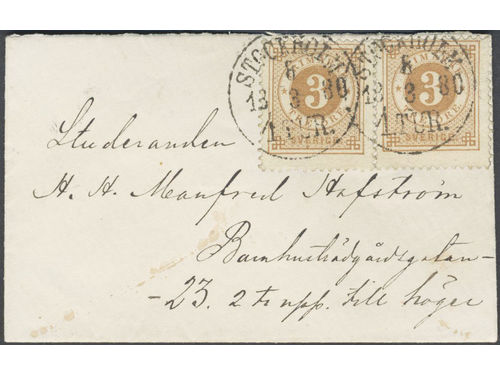 STOCKHOLM STOCKHOLM
6 6
18 3 80 18 3 80
1 TUR. 1 TUR.
3 3
TRE ÖRE. TRE ÖRE.
SVERIGE. SVERIGE.
Studeranden
H. H. Manfred Hafström
Barnhusträdgårdsgatan
- 23. 2 tr upp. till höger